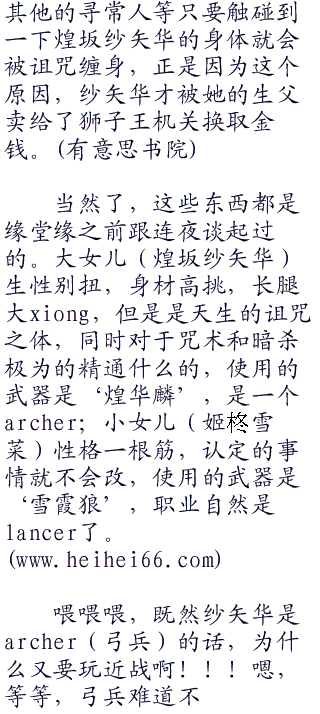 其他的寻常人等只要触碰到
一下煌坂纱矢华的身体就会
被诅咒缠身，正是因为这个
原因，纱矢华才被她的生父
卖给了狮子王机关换取金
钱。(有意思书院)
当然了，这些东西都是
缘堂缘之前跟连夜谈起过
的。大女儿（煌坂纱矢华）
生性别扭，身材高挑，长腿
大xiong，但是是天生的诅咒
之体，同时对于咒术和暗杀
极为的精通什么的，使用的
武器是‘煌华麟’，是一个
archer；小女儿（姬柊雪
菜）性格一根筋，认定的事
情就不会改，使用的武器是
‘雪霞狼’，职业自然是
lancer了。
(www.heihei66.com)
喂喂喂，既然纱矢华是
archer（弓兵）的话，为什
么又要玩近战啊！！！嗯，
等等，弓兵难道不